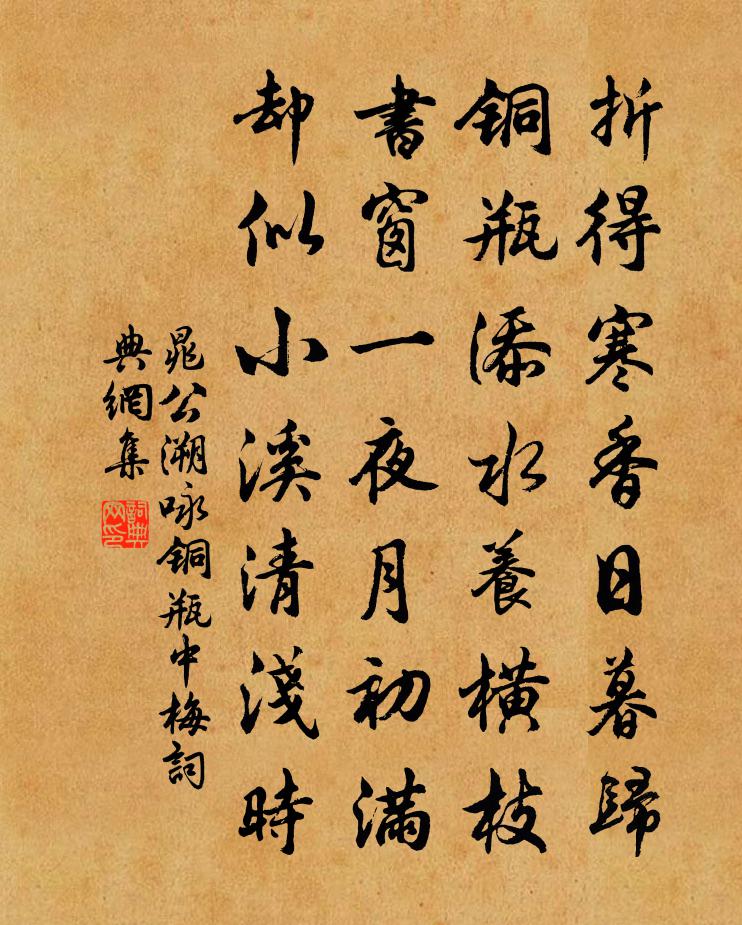 折得寒香日暮歸
铜瓶添水養橫枝
書窗一夜月初滿
却似小溪清淺時
晁公溯咏铜瓶中梅詞
典網集
詞典網印